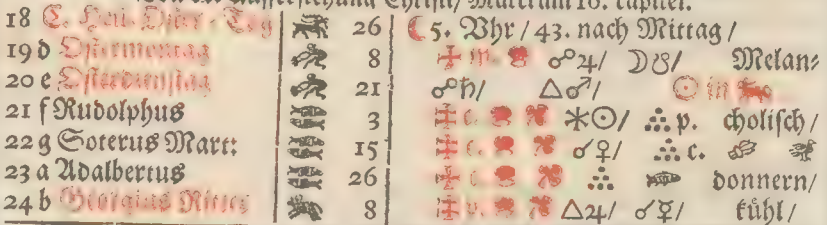 Von der Aufferstehung Christi/ Marci am 16. capitel.
18 C. Heil. Oster-Tag 26 ☾ 5. Vhr / 43. nach Mittag /
19 d Ostermontag 8 ☍♃/ ☽☋/ Melan⸗
20 e Osterdienstag 21 ☍♄/ △♂/ ☉ in
21 f Rudolphus 3 c. ⚹☉/ p. cholisch /
22 g Soterus Mart: 15 c. ☌♀/ c.
23 a Adalbertus 26 c. donnern/
24 b Georgius Ritter 8 △♃/ ☌☿/ kühl /